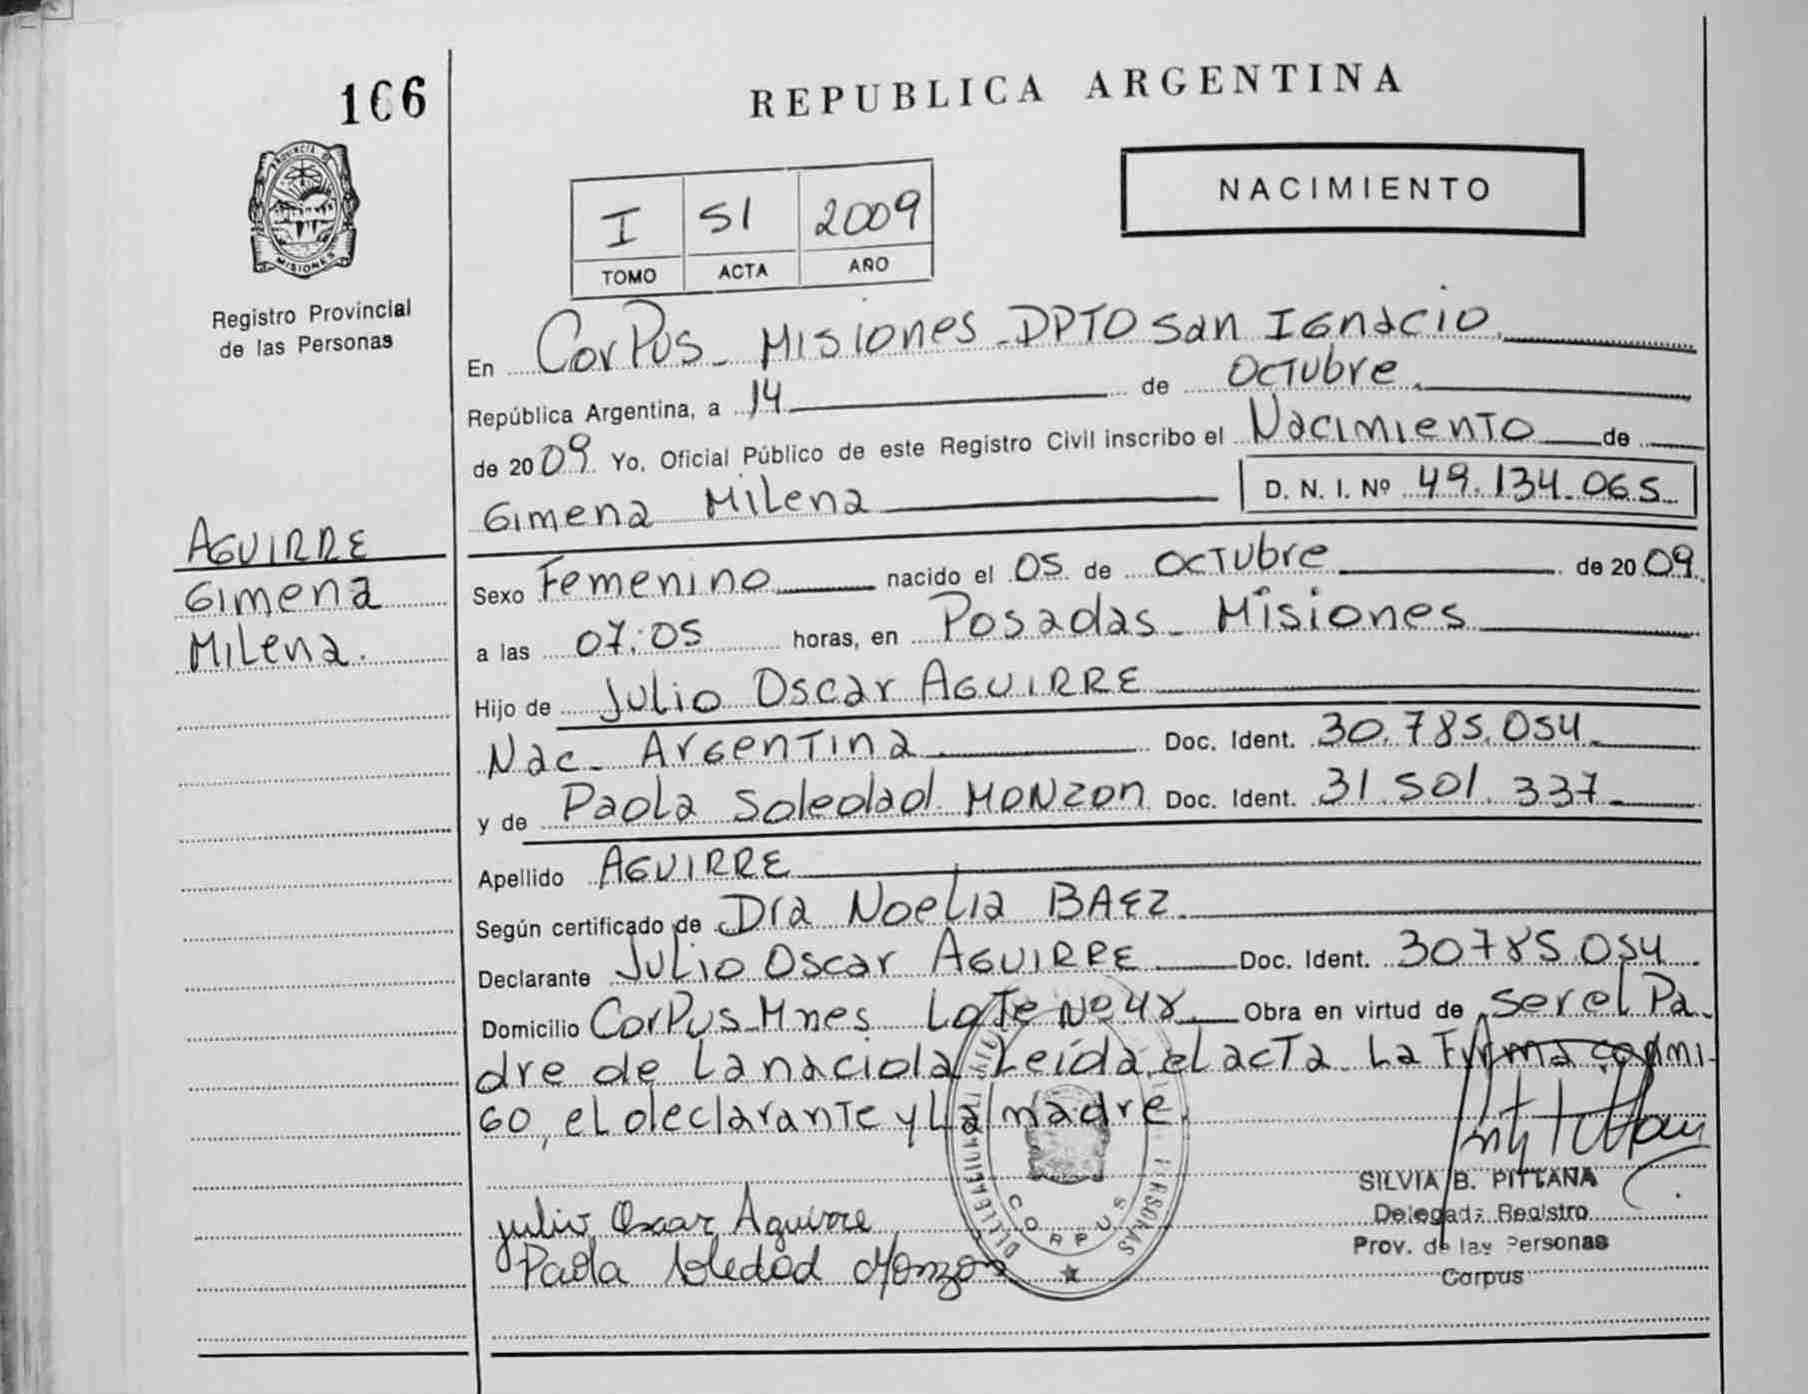 166
REPUBLICA ARGENTINA
NACIMIENTO
I 51 2009
TOMO ACTA AÑO
PROVINCIA D
MISIONES
Registro Provincial
de las Personas
En Corpus - Misiones - DPTO San Ignacio
República Argentina, a 14 de Octubre
de 2009 Yo, Oficial Público de este Registro Civil inscribo el Nacimiento de
Gimena Milena D. N. I. Nº 49.134.065
AGUIRRE
Gimena
Milena.
Sexo Femenino nacido el 05 de Octubre de 2009
a las 07:05 horas, en Posadas - Misiones
Hijo de Julio Oscar AGUIRRE
Nac. Argentina Doc. Ident. 30.785.054
y de Paola Soledad MONZON Doc. Ident. 31.501.337
Apellido AGUIRRE
Según certificado de Dra Noelia BAEZ
Declarante Julio Oscar AGUIRRE Doc. Ident. 30785.054
Domicilio Corpus Mnes Lote Nº 48 Obra en virtud de ser el Pa-
dre de la nacida. Leída el acta. La Firma conmi-
go, el declarante y la madre.
Julio Oscar Aguirre
Paola Soledad Monzon
CORPUS
SILVIA B. PITTANA
Delegada Registro
Prov. de las Personas
Corpus